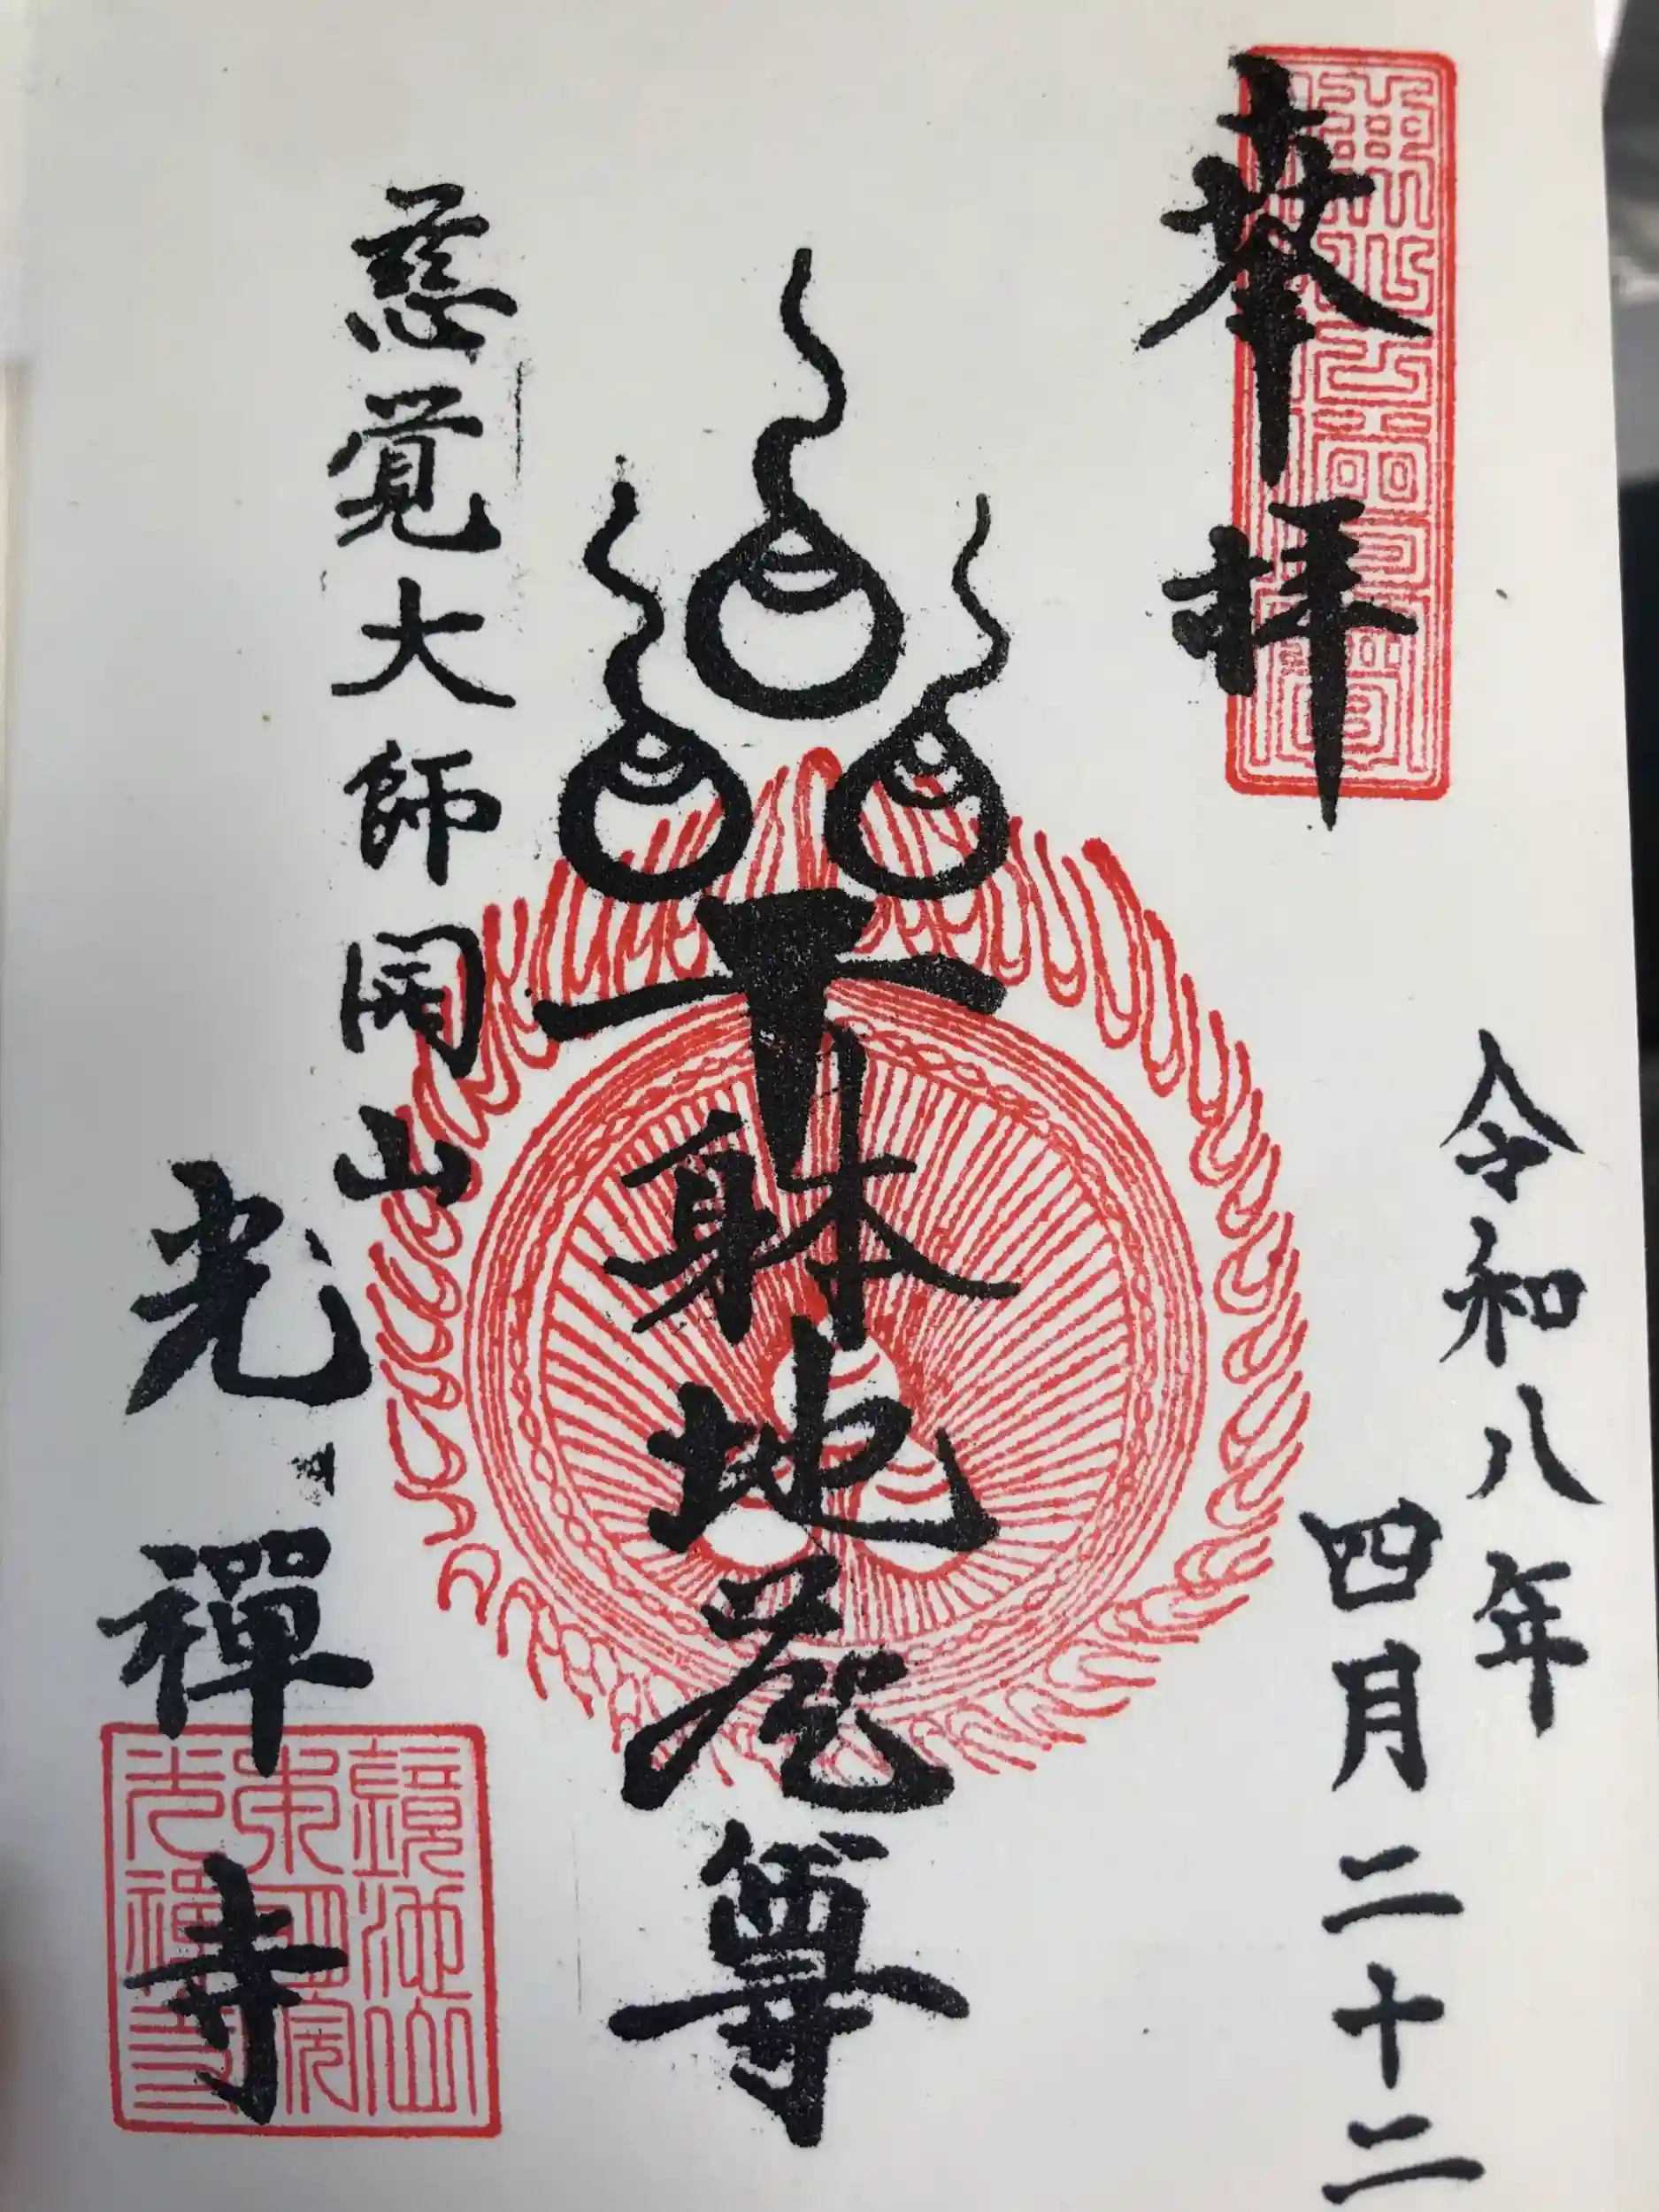 奉拝
令和八年
四月二十二
千躰地蔵尊
慈覚大師開山
光禪寺
鏡池山
光禪寺